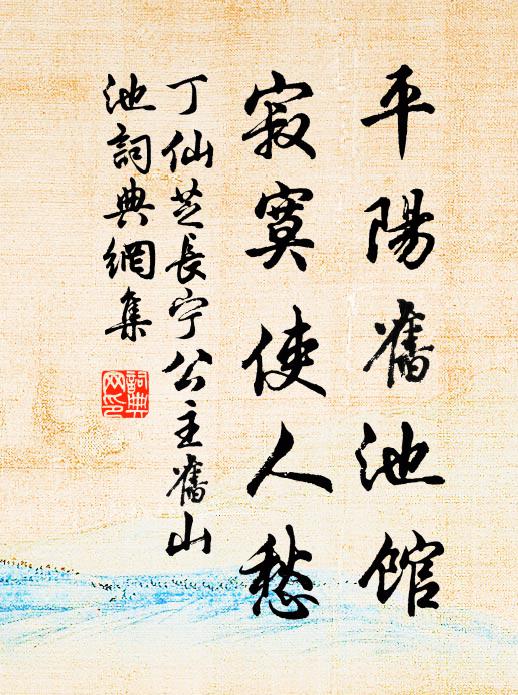 平陽舊池館
寂寞使人愁
丁仙芝長宁公主舊山
池詞典網集
詞典
网印